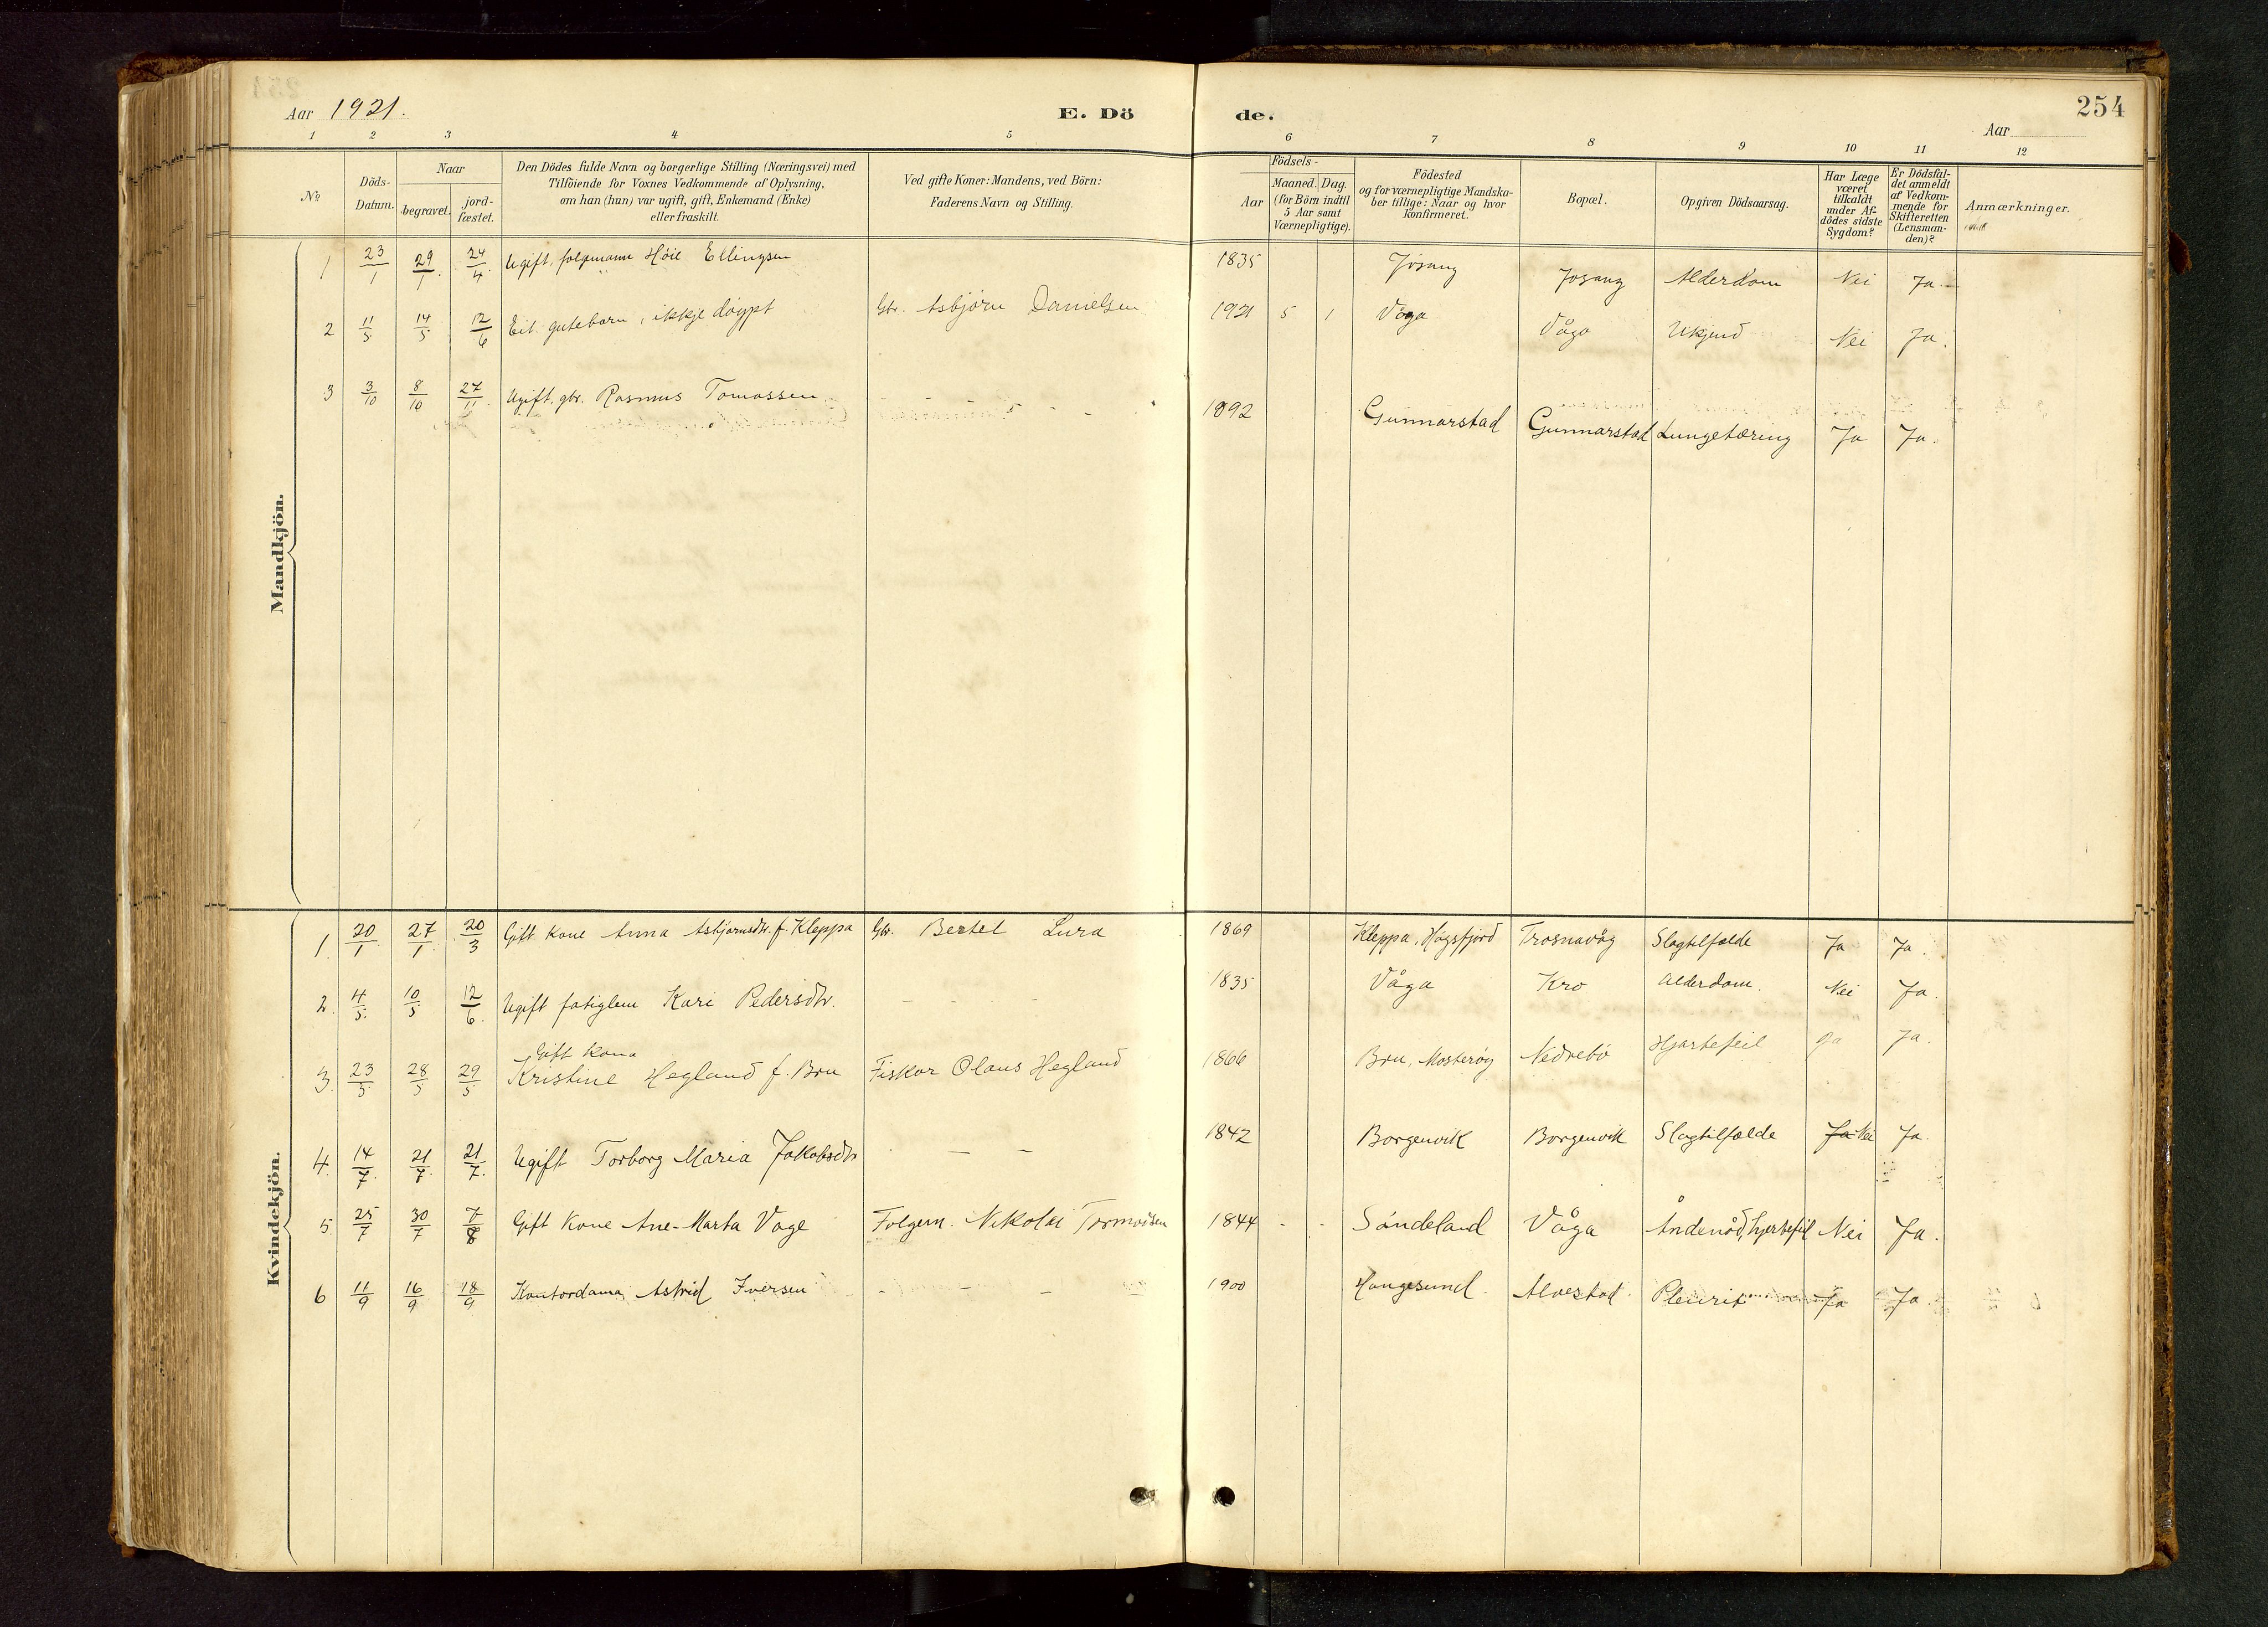 Aar 1921. E. Dö de. Aar 254
1 2 3 4 5 6 7 8 9 10 11 12
No
Döds-Datum.
Naar
begravet.
jord-fæstet.
Den Dödes fulde Navn og borgerlige Stilling (Næringsvei) med
Tilföiende for Voxnes Vedkommende af Oplysning,
om han (hun) var ugift, gift, Enkemand (Enke)
eller fraskilt.
Ved gifte Koner: Mandens, ved Börn:
Faderens Navn og Stilling.
Födsels-
Aar
Maaned. Dag.
(for Börn indtil
5 Aar samt
Værnepligtige).
Födested
og for værnepligtige Mandska-
ber tillige: Naar og hvor
konfirmeret.
Bopæl.
Opgiven Dödsaarsag.
Har Læge
været
tilkaldt
under Af-
dödes sidste
Sygdom?
Er Dödsfal-
det anmeldt
af Vedkom-
mende for
Skifteretten
(Lensman-
den)?
Anmærkninger.
Mandkjön.
1 23/1 29/1. 24/4. Ugift folgmann Höie Ellingsen 1835 Jösang Josang Alderdom Nei Ja.
2 11/5. 14/5 12/6 Eit gutebarn, ikkje döypt Gbr. Asbjörn Danielsen 1921 5 1 Våga Våga Ukjend Nei Ja.
3 3/10 8/10 27/11. Ugift. gbr. Rasmus Tomassen - - - - - 1892 Gunnarstad Gunnarstad Lungetæring Ja Ja.
Kvindekjön.
1. 20/1 27/1. 20/3 Gift Kone Anna Asbjørnsdtr. f. Kleppa Gbr. Bertel Lura 1869 Kleppa, Högsfjord Trosnavåg Slagtilfælde Ja Ja.
2. 4/5. 10/5 12/6. Ugift fatiglem Kari Pedersdtr. - - - 1835 Våga Kro Alderdom. Nei Ja.
3. 23/5 28/5 29/5 Gift Kona
Kristine Hegland f. Bru Fiskar Olaus Hegland 1866 Bru, Mosteröy Nedrebö Hjartefeil Ja Ja.
4. 14/7. 21/7. 21/7. Ugift Torborg Maria Jakobsdtr - - 1842 Borgenvik Borgenvik Slagtilfælde Ja Nei Ja.
5 25/7 30/7 7/8 Gift Kone Ane-Marta Vage Folgem. Nikolai Tormodsen 1844 - - Söndeland Våga Åndenöd, hjertefeil Nei Ja.
6 11/9 16/9 18/9 Kontordama Astrid Iversen - - - 1900 Haugesund. Alvestad. Pleurit Ja Ja.